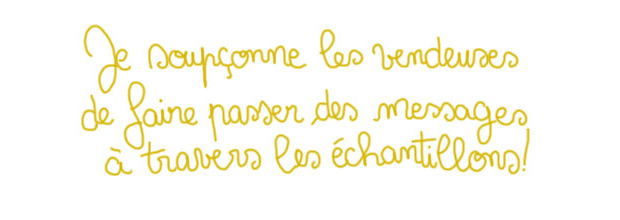 Je soupçonne les vendeuses
de faire passer des messages
à travers les échantillons!